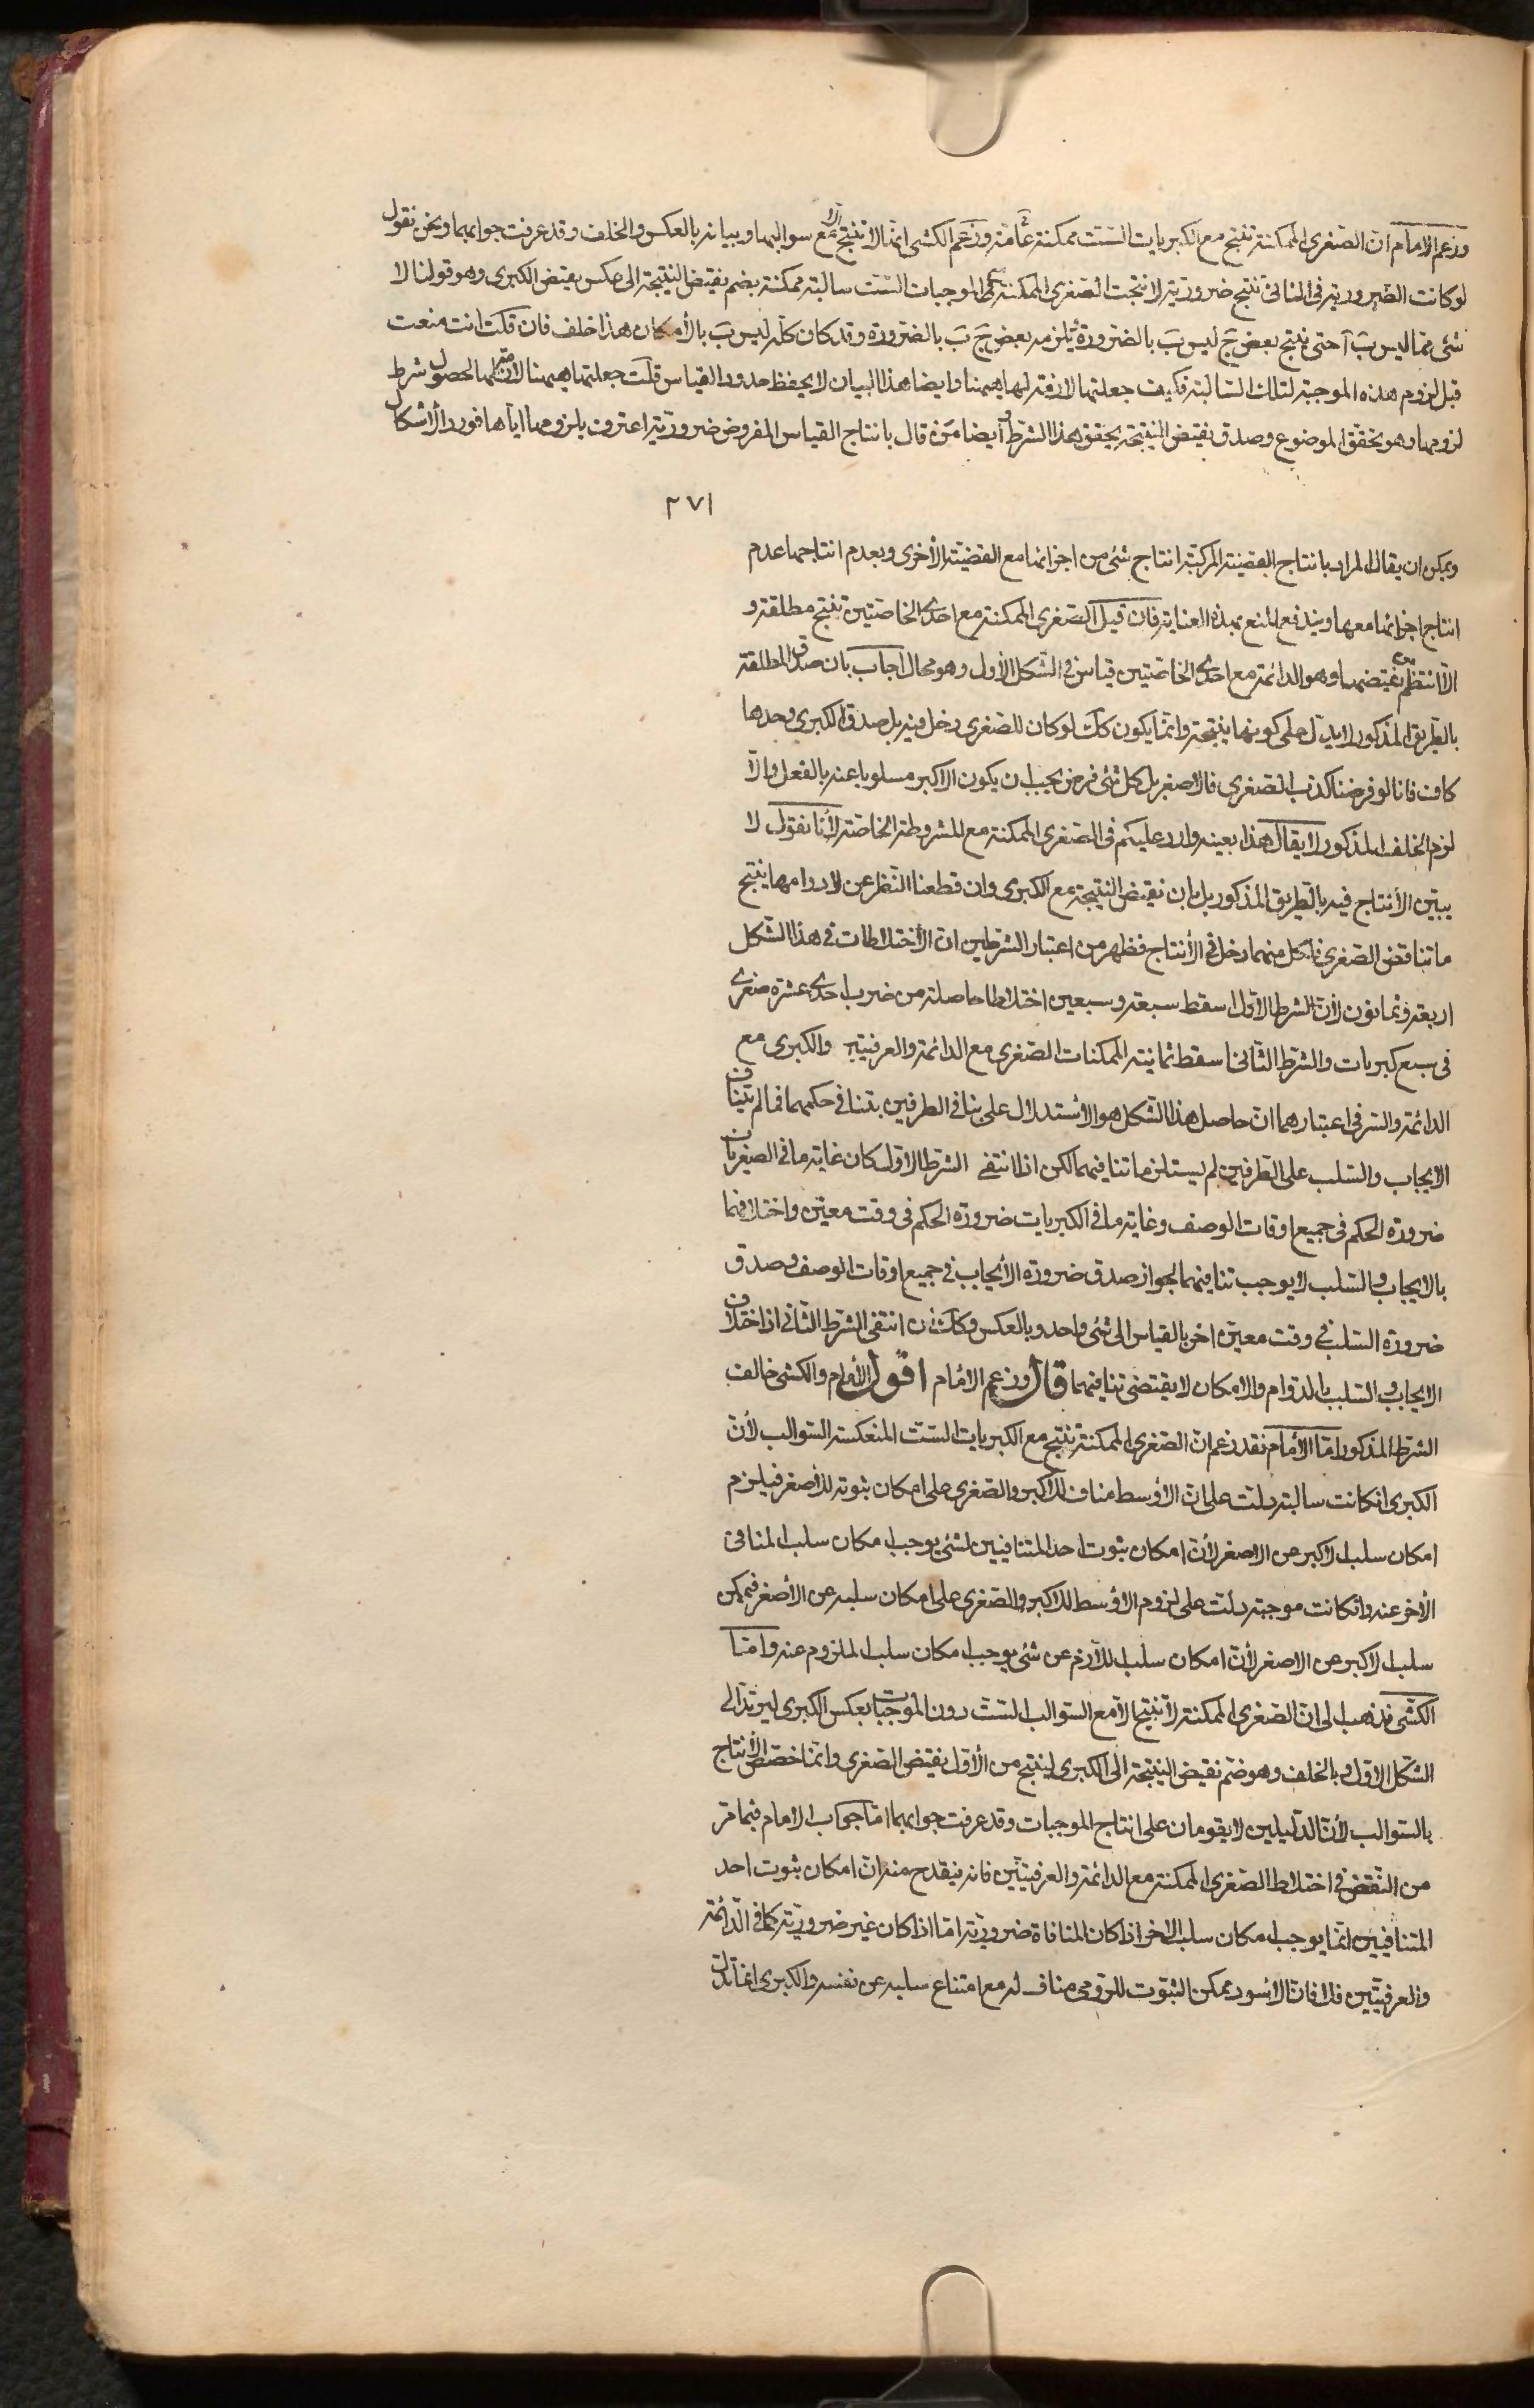 وزعم الامام ان الصغرى الممكنة تنتج مع الكبريات الست ممكنة عامة وزعم الكشى انها لا تنتج الا مع سوالبها وبيانه بالعكس والخلف وقد عرفت جوابهما ونحن نقول
لو كانت الضرورية فى الثانى تنتج ضرورية لانتجت الصغرى الممكنة مع الموجبات الست سالبة ممكنة بضم نقيض النتيجة الى عكس نقيض الكبرى وهو قولنا لا
شئ مما ليس بَ آ حتى ينتج بعض جَ ليس بَ بالضرورة يلزمه بعض جَ بَ بالضرورة وقد كان كله ليس بَ بالامكان هذا خلف فان قلت انت منعت
قبل لزوم هذه الموجبة لتلك السالبة فكيف جعلتها لازمة لها ههنا وايضا هذا البيان لا يحفظ حدود القياس قلت جعلتها ههنا لازمة لها لحصول شرط
لزومها وهو تحقق الموضوع وصدق نقيض النتيجة يحقق هذا الشرط وايضا من قال بانتاج القياس المفروض ضرورية اعترف بلزومها اياها فورد الأشكال
٢٧١
ويمكن ان يقال المراد بانتاج القضية المركبة انتاج شئ من اجزائها مع القضية الأخرى وبعدم انتاجها عدم
انتاج اجزائها معها ويندفع المنع بهذه العناية فان قيل الصغرى الممكنة مع احدى الخاصتين تنتج مطلقة و
الا انتظم نقيضها وهو الدائمة مع احدى الخاصتين قياس فى الشكل الأول وهو محال اجاب بان صدق المطلقة
بالطريق المذكور لا يدل على كونها نتيجة وانما يكون كك لو كان للصغرى دخل فيه بل صدق الكبرى وحدها
كاف فانا لو فرضنا كذب الصغرى فالاصغر بل كل شئ فرض يجب ان يكون الاكبر مسلوبا عنه بالفعل والا
لزم الخلف المذكور لا يقال هذا بعينه وارد عليكم فى الصغرى الممكنة مع المشروطة الخاصة لأنا نقول لا
يبين الأنتاج فيه بالطريق المذكور بل بان نقيض النتيجة مع الكبرى وان قطعنا النظر عن لادوامها ينتج
ما تناقض الصغرى فلكل منهما دخل فى الأنتاج فظهر من اعتبار الشرطين ان الأختلاطات فى هذا الشكل
اربعة وثمانون لأن الشرط الاول اسقط سبعة وسبعين اختلاطا حاصلة من ضرب احدى عشرة صغرى
فى سبع كبريات والشرط الثانى اسقط ثمانية الممكنات الصغرى مع الدائمة والعرفيتين والكبرى مع
الدائمة والسر فى اعتبارهما ان حاصل هذا الشكل هو الأستدلال على تنافى الطرفين بتنافى حكمهما فما لم يتناف
الايجاب والسلب على الطرفين لم يستلزما تنافيهما لكن اذا انتفى الشرط الاول كان غاية ما فى الصغريات
ضرورة الحكم فى جميع اوقات الوصف وغاية ما فى الكبريات ضرورة الحكم فى وقت معين واختلافهما
بالايجاب والسلب لا يوجب تنافيهما لجواز صدق ضرورة الأيجاب فى جميع اوقات الوصف وصدق
ضرورة السلب فى وقت معين اخر بالقياس الى شئ واحد وبالعكس وكك ان انتفى الشرط الثانى اذ اختلاف
الايجاب والسلب بالدوام والامكان لا يقتضى تنافيهما قال وزعم الامام اقول الأمام والكشى خالف
الشرط المذكور اما الأمام فقد زعم ان الصغرى الممكنة تنتج مع الكبريات الست المنعكسة السوالب لأن
الكبرى ان كانت سالبة دلت على ان الأوسط مناف للاكبر والصغرى على امكان ثبوته للأصغر فيلزم
امكان سلب الاكبر عن الاصغر لأن امكان ثبوت احد المتنافيين لشئ يوجب امكان سلب المنافى
الأخر عنه وان كانت موجبة دلت على لزوم الأوسط للاكبر والصغرى على امكان سلبه عن الأصغر فيمكن
سلب الاكبر عن الاصغر لأن امكان سلب اللازم عن شئ يوجب امكان سلب الملزوم عنه واما
الكشى فذهب الى ان الصغرى الممكنة لا تنتج الا مع السوالب الست دون الموجبات بعكس الكبرى ليرتد الى
الشكل الاول وبالخلف وهو ضم نقيض النتيجة الى الكبرى لينتج من الأول نقيض الصغرى وانما خصص الأنتاج
بالسوالب لأن الدليلين لا يقومان على انتاج الموجبات وقد عرفت جوابهما اما جواب الامام فيما مر
من النقض فى اختلاط الصغرى الممكنة مع الدائمة والعرفيتين فانه ينقدح منه ان امكان ثبوت احد
المتنافيين انما يوجب امكان سلب الاخر اذا كان المنافاة ضرورية اما اذا كان غير ضرورية كما فى الدائمة
والعرفيتين فلا فان الاسود ممكن الثبوت للرومى مناف له مع امتناع سلبه عن نفسه والكبرى انما تدل